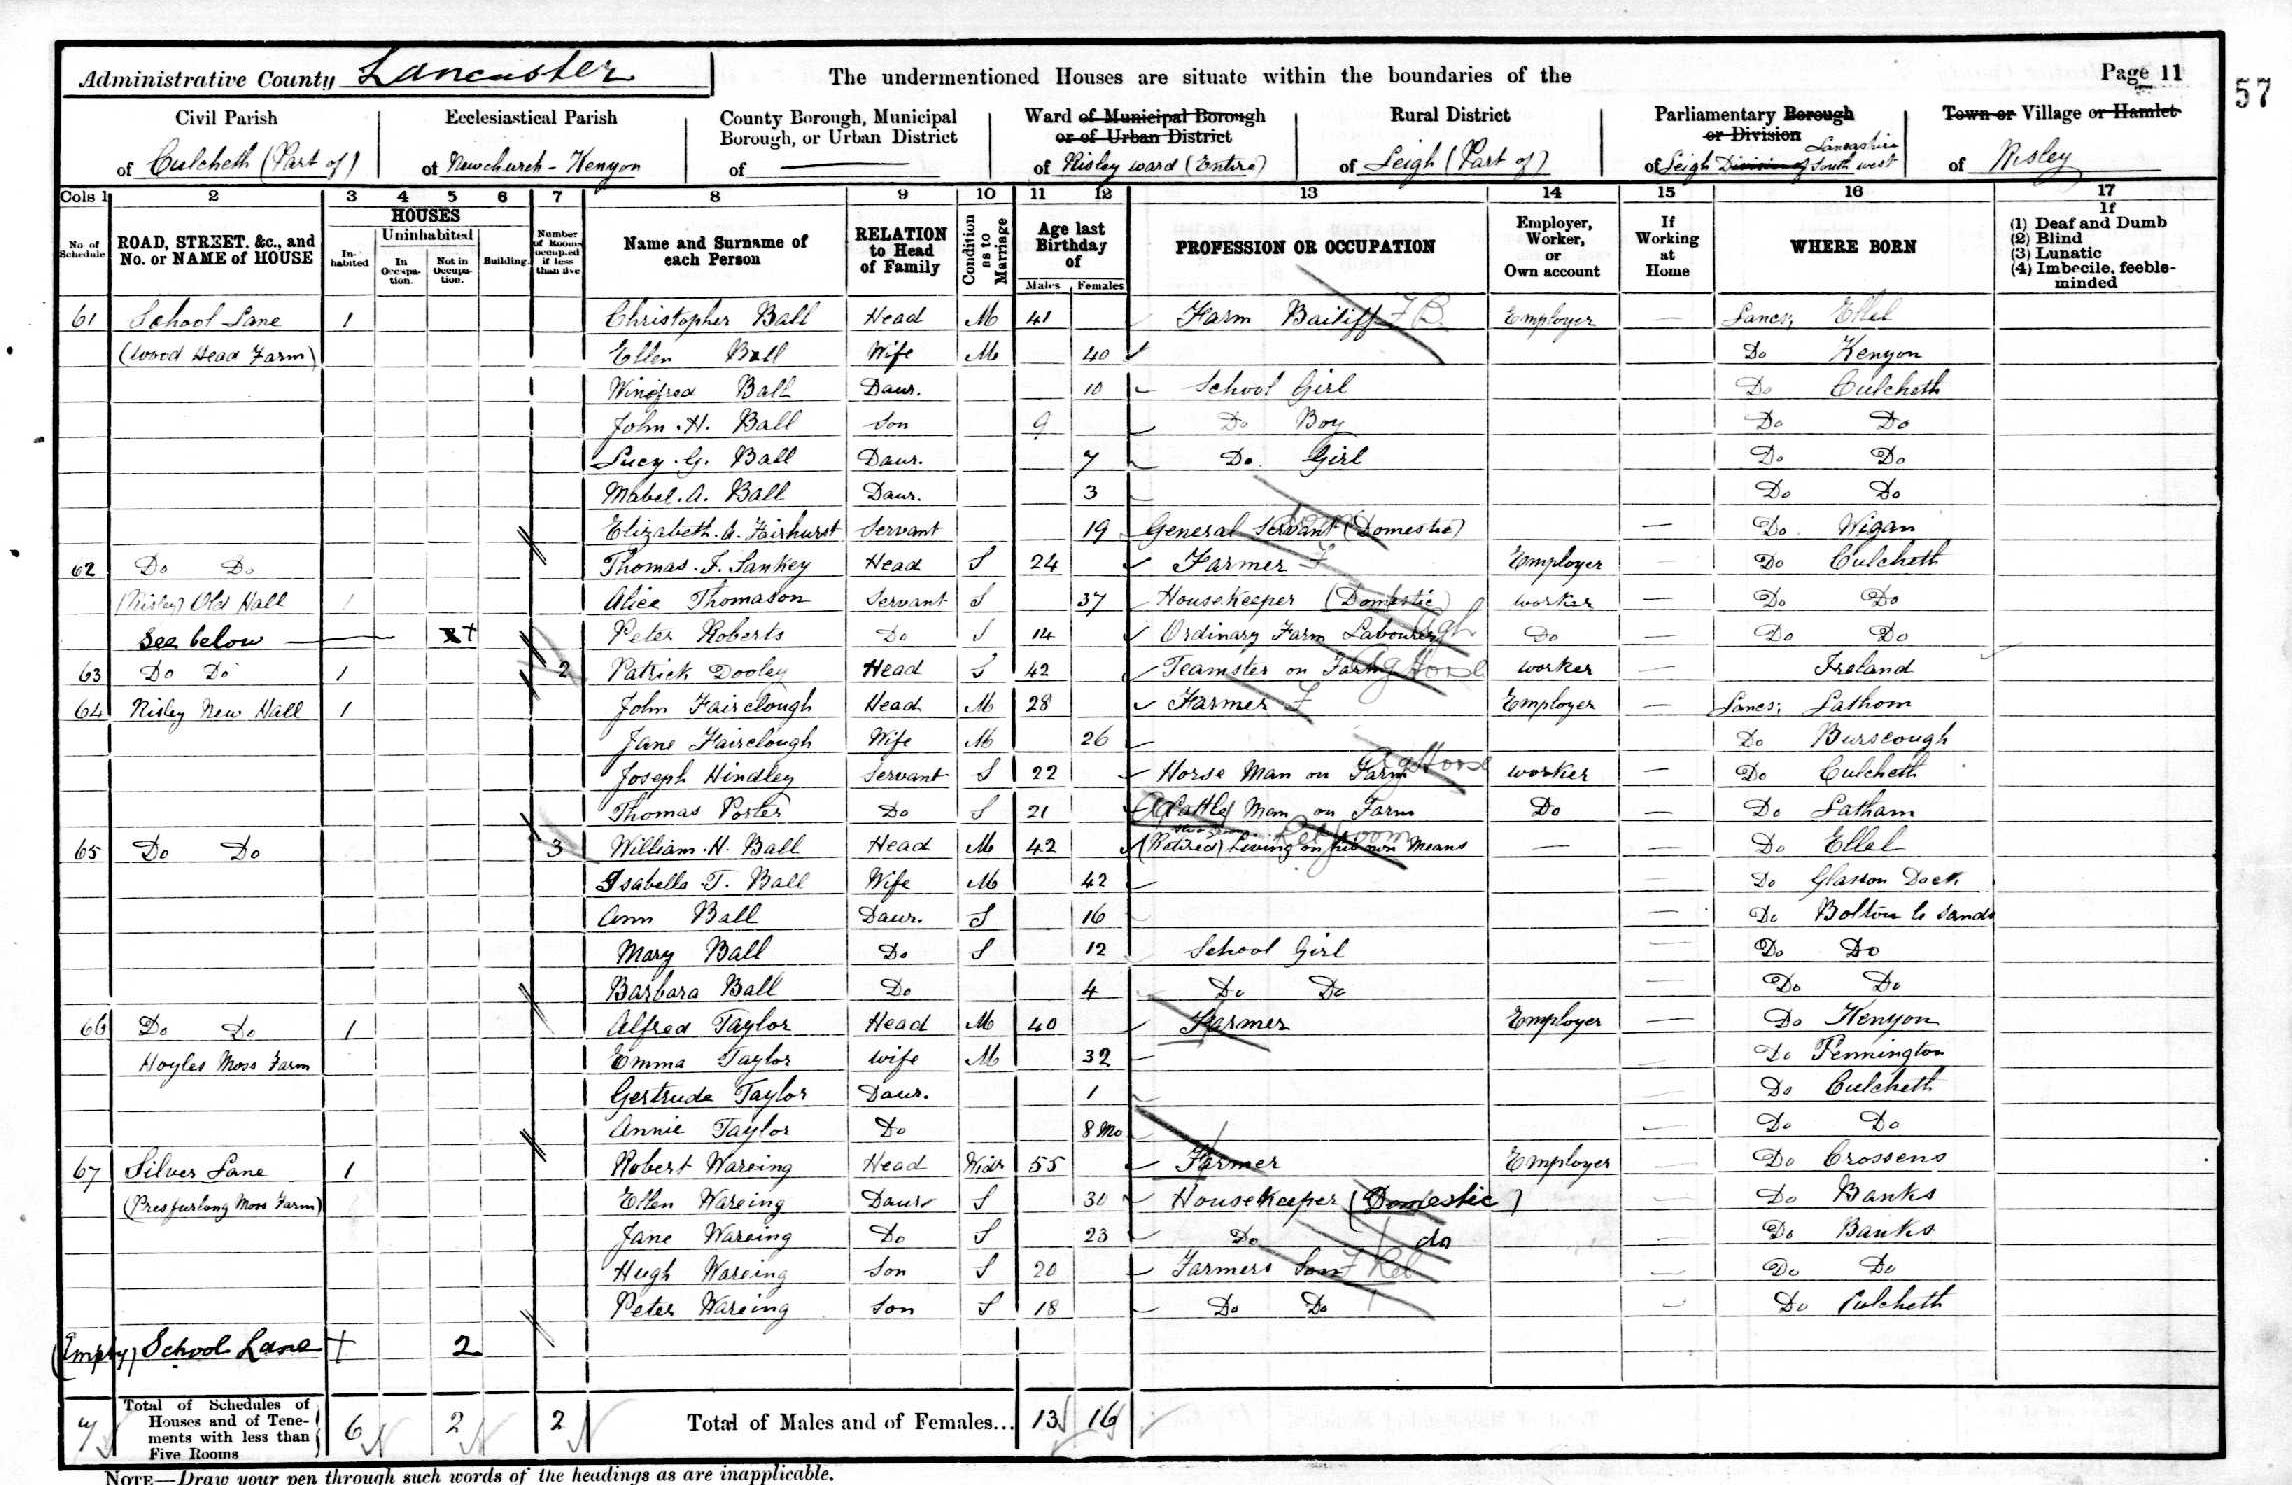 Administrative County Lancaster The undermentioned Houses are situate within the boundaries of the Page 11
57
Civil Parish Ecclesiastical Parish County Borough, Municipal Borough, or Urban District Ward of Municipal Borough or of Urban District Rural District Parliamentary Borough or Division Town or Village or Hamlet
of Culcheth (Part of) of Newchurch - Kenyon of — of Risley ward (Entire) of Leigh (Part of) of Leigh Division of South west Lancashire of Risley
Cols 1 2 3 4 5 6 7 8 9 10 11 12 13 14 15 16 17
No. of Schedule ROAD, STREET, &c., and No. or NAME of HOUSE HOUSES Inhabited Uninhabited In Occupation. Not in Occupation. Building. Number of Rooms occupied if less than five Name and Surname of each Person RELATION to Head of Family Condition as to Marriage Age last Birthday of Males Females PROFESSION OR OCCUPATION Employer, Worker, or Own account If Working at Home WHERE BORN If (1) Deaf and Dumb (2) Blind (3) Lunatic (4) Imbecile, feeble-minded
61 School Lane 1 Christopher Ball Head M 41 Farm Bailiff F B Employer — Lancs; Ellel
(Wood Head Farm) Ellen Ball Wife M 40 Do Kenyon
Winifred Ball Daur. 10 School Girl Do Culcheth
John . H. Ball Son 9 Do Boy Do Do
Lucy . G. Ball Daur. 7 Do. Girl Do Do
Mabel . A. Ball Daur. 3 Do Do
Elizabeth . A. Fairhurst Servant 19 General Servant (Domestic) — Do. Wigan
62 Do Do Thomas . F. Sankey Head S 24 Farmer F Employer — Do Culcheth
(Risley) Old Hall 1 Alice Thomason Servant S 37 Housekeeper (Domestic) worker — Do Do
See below — x+ Peter Roberts Do S 14 Ordinary Farm Labourer Agl Do — Do Do
63 Do Do 1 2 Patrick Dooley Head S 42 Teamster on Farm Ag Horse worker — Ireland
64 Risley New Hall 1 John Fairclough Head M 28 Farmer F Employer — Lancs; Lathom
Jane Fairclough Wife M 26 Do Burscough
Joseph Hindley Servant S 22 Horse Man on Farm Ag Horse worker — Do Culcheth
Thomas Porter Do S 21 Cattle Man on Farm Do — Do Latham
65 Do Do 3 William . H. Ball Head M 42 (Retired) Living on his own Means — Do Ellel
Isabella . T. Ball Wife M 42 — Do Glasson Dock
Ann Ball Daur. S 16 — Do Bolton le Sands
Mary Ball Do S 12 School Girl — Do Do
Barbara Ball Do 4 Do Do — Do Do
66 Do Do 1 Alfred Taylor Head M 40 Farmer Employer — Do Kenyon
Hoyles Moss Farm Emma Taylor wife M 32 — Do Pennington
Gertrude Taylor Daur. 1 — Do Culcheth
Annie Taylor Do 8 Mo — Do Do
67 Silver Lane 1 Robert Wareing Head Widr 55 Farmer Employer — Do Crossens
(Presfurlong Moss Farm) Ellen Wareing Daur S 30 Housekeeper (Domestic) — Do Banks
Jane Wareing Do S 23 Do do — Do Banks
Hugh Wareing Son S 20 Farmers Son F Rel — Do Do
Peter Wareing Son S 18 Do Do — Do Culcheth
(Empty) School Lane + 2
7 Total of Schedules of Houses and of Tenements with less than Five Rooms 6 2 2 Total of Males and of Females... 13 16
NOTE—Draw your pen through such words of the headings as are inapplicable.